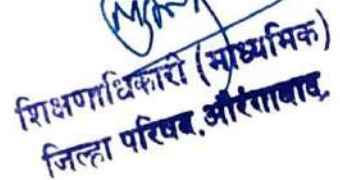 शिक्षणाधिकारी (माध्यमिक)
जिल्हा परिषद, औरंगाबाद